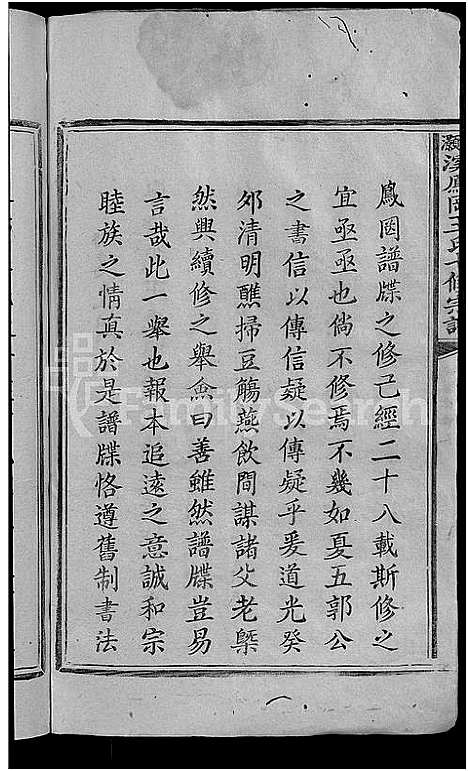 鳳岡譜牒之修已經二十八載斯修之
宜亟亟也倘不修焉不幾如夏五郭公
之書信以傳信疑以傳疑乎爰道光癸
夘清明醮掃豆觴燕飲間謀諸父老槩
然興續修之舉僉曰善雖然譜牒豈易
言哉此一舉也報本追遠之意誠和宗
睦族之情真於是譜牒恪遵舊制書法
FamilySearch